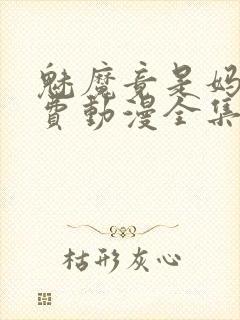 魅魔竟是妈
费動漫全集
枯形灰心